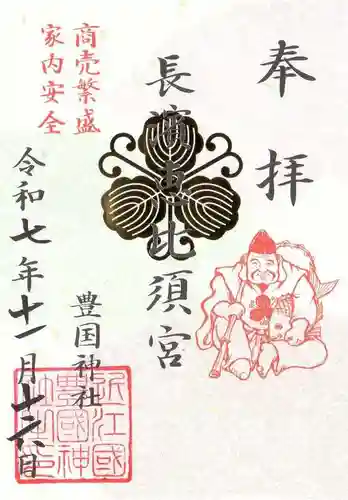 奉拝
長濱恵比須宮
商売繁盛
家内安全
豊国神社
令和七年十一月十六日
近江國
豊國神